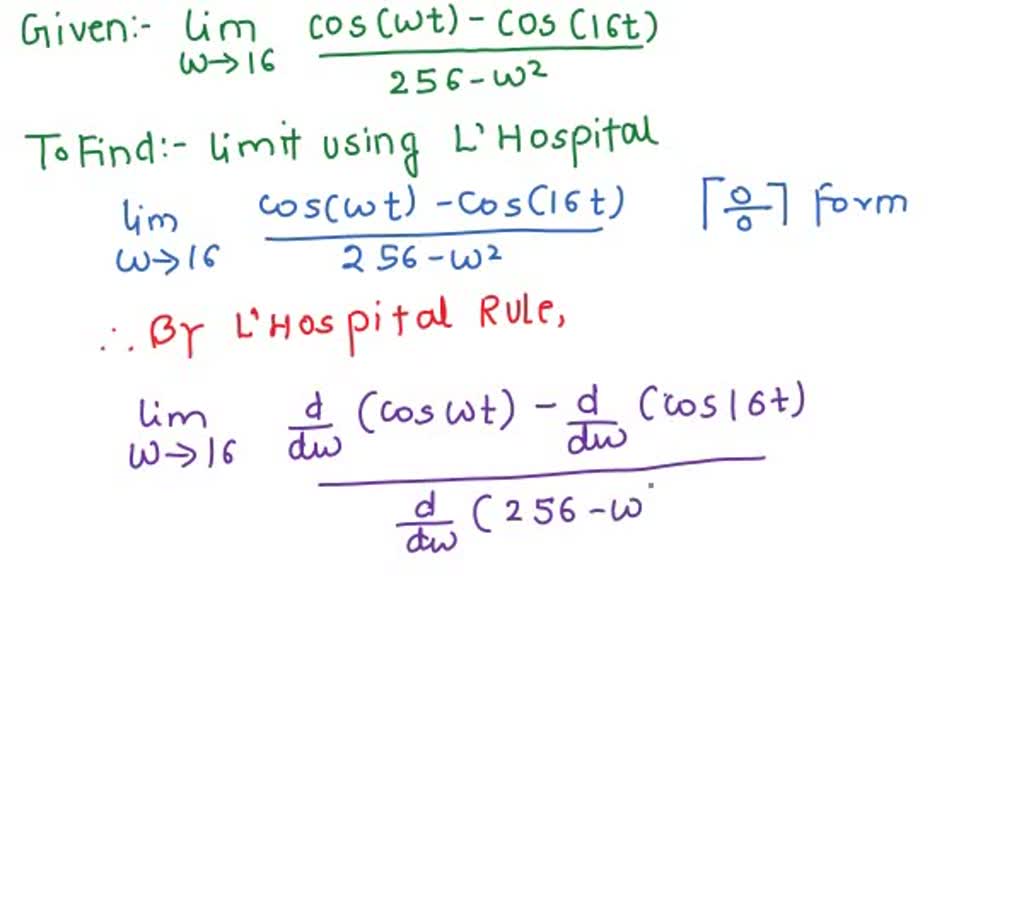 Given:- lim w→16 cos(wt) - cos(16t) / 256-w²
To Find:- limit using L'Hospital
lim w→16 cos(wt) - cos(16t) / 256-w² [0/0] form
∴ By L'Hospital Rule,
lim w→16 d/dw (cos wt) - d/dw (cos 16t) / d/dw (256-w